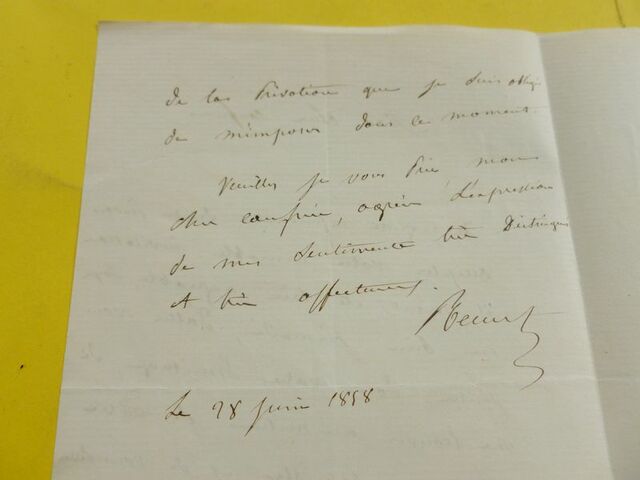 de la Privation que je suis obligé
de m'imposer dans ce moment.
Veuillez je vous Prie, mon
cher confrère, agréer L'expression
de mes Sentiments très Distingués
et très affectueux.
Le 28 juin 1858